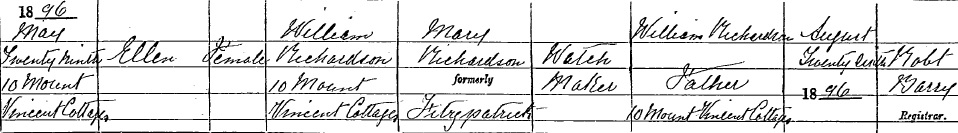 1896
May
Twenty Ninth
10 Mount
Vincent Cottages
Ellen
Female
William
Richardson
10 Mount
Vincent Cottages
Mary
Richardson
formerly
Fitzpatrick
Watch
Maker
William Richardson
Father
10 Mount Vincent Cottages
August
Twenty Sixth
1896
Robt
Barry
Registrar.